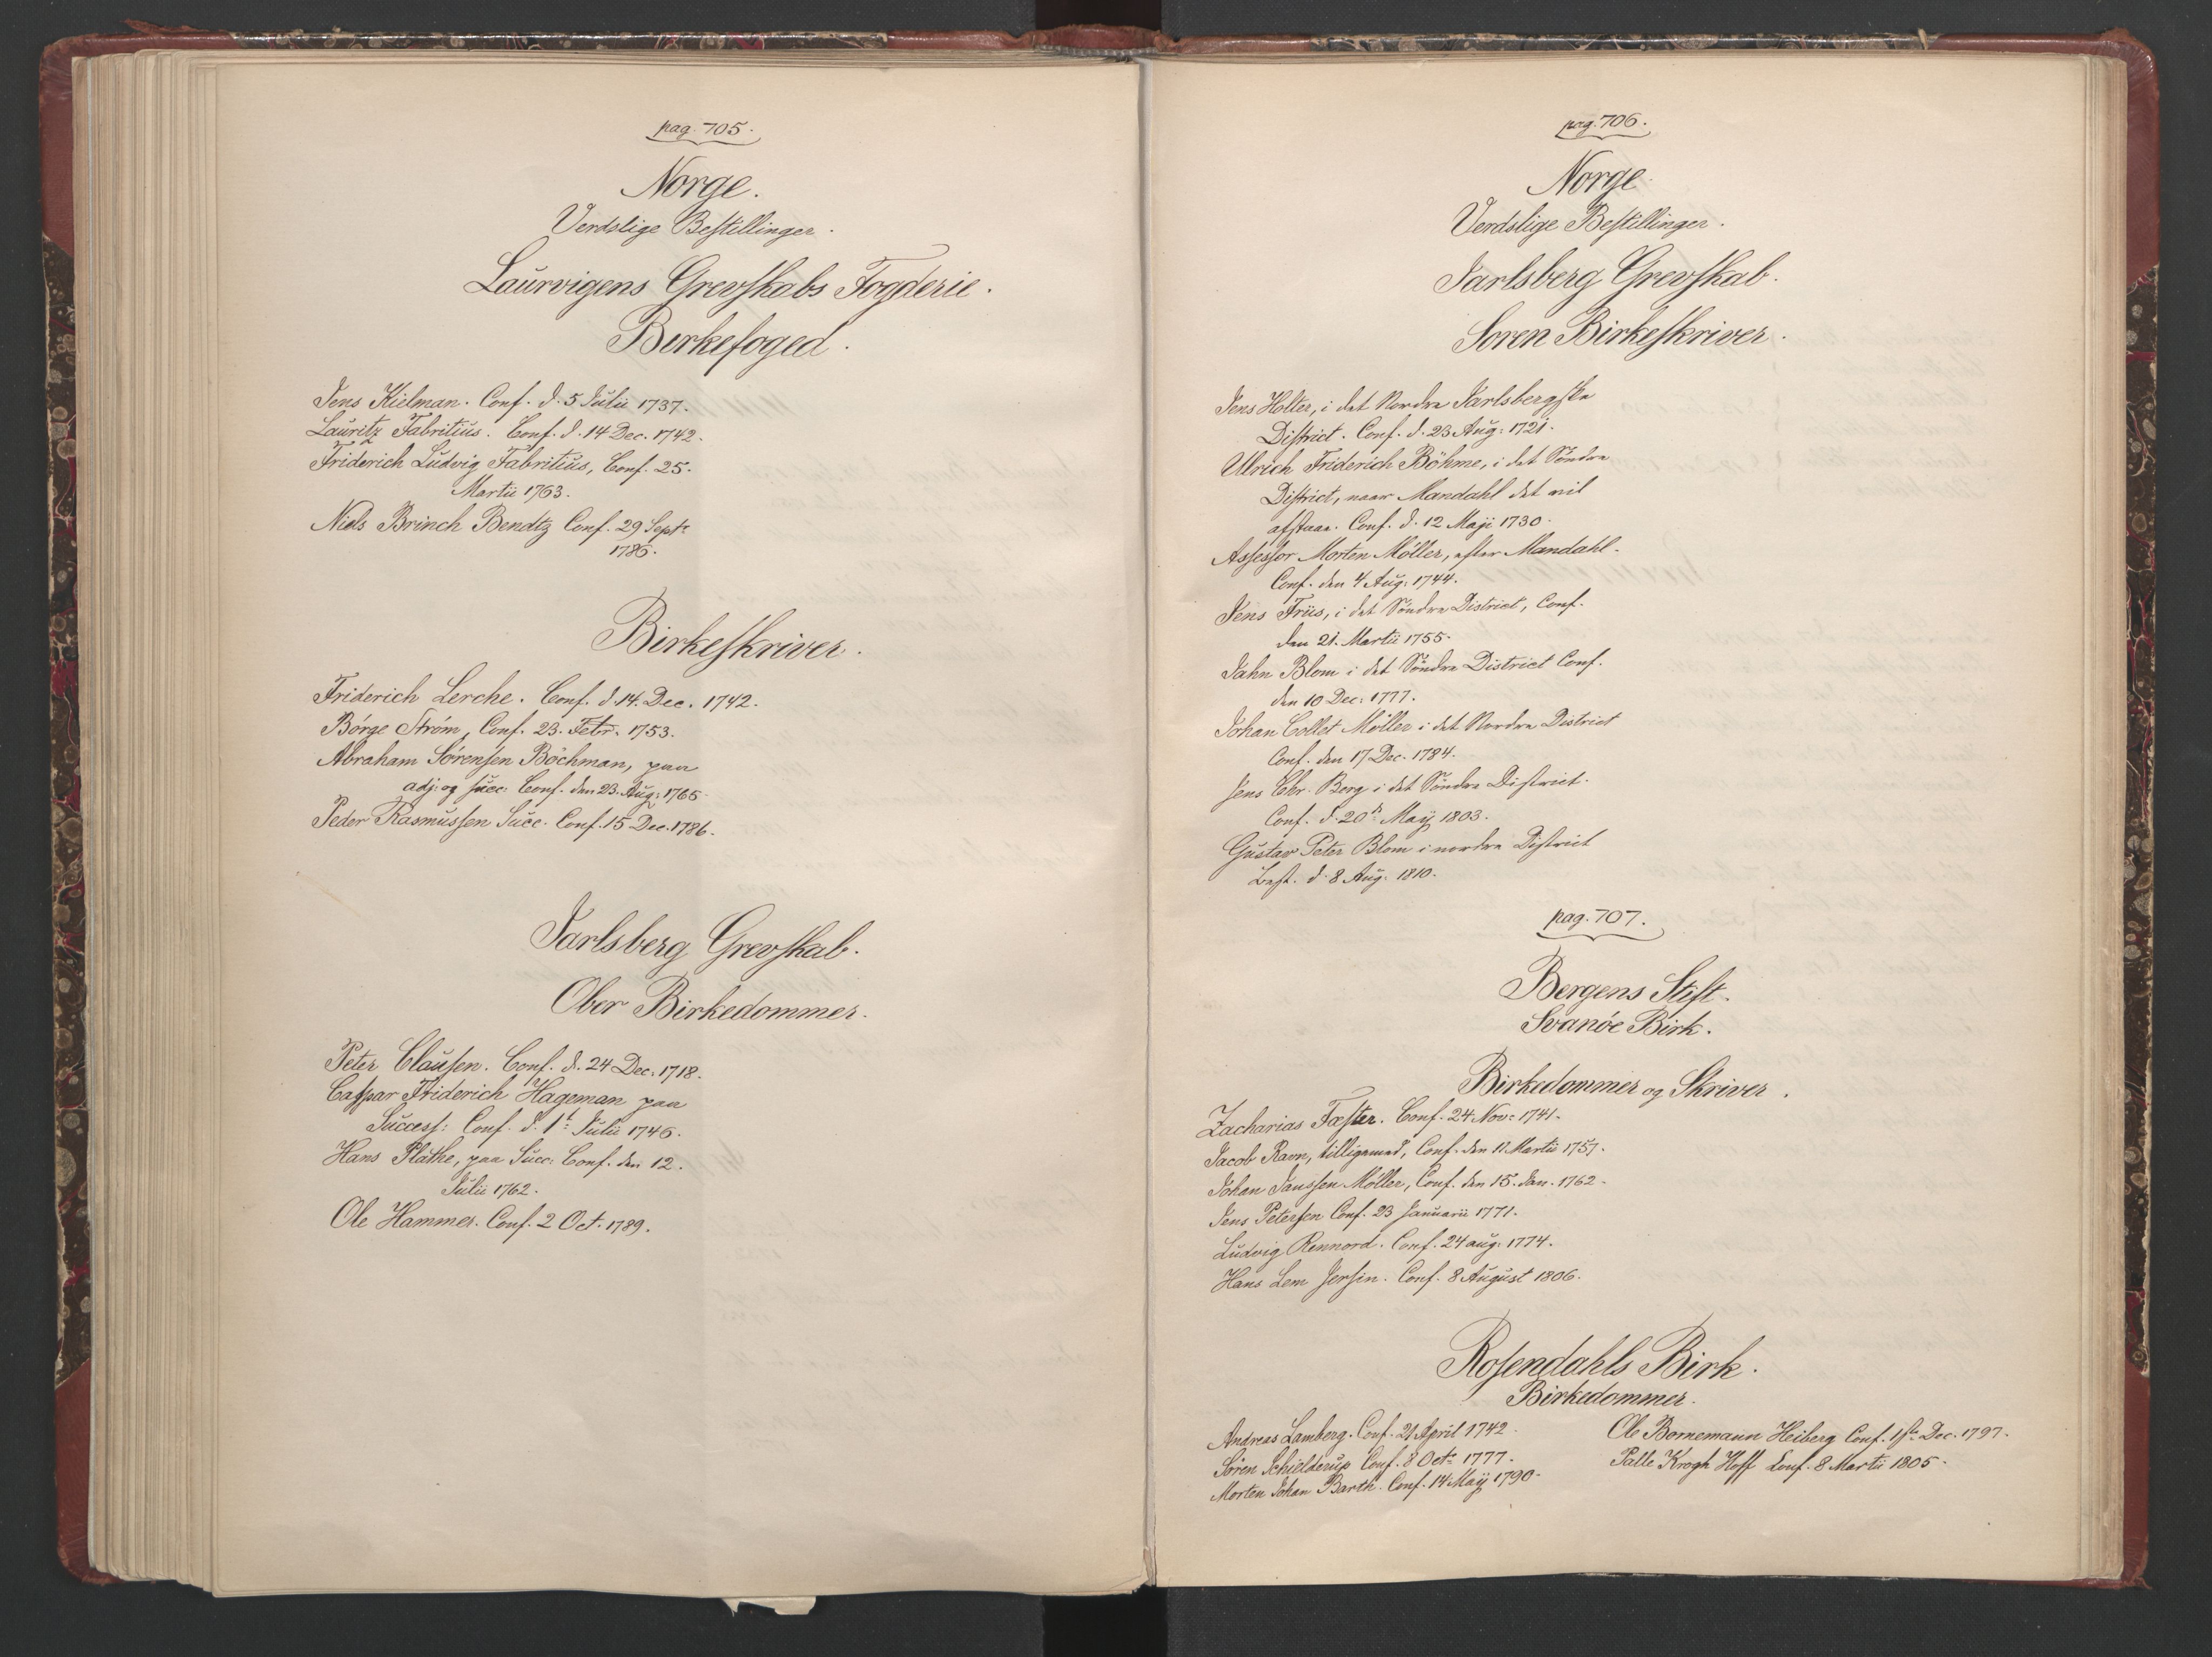 pag. 705.
Norge.
Verdslige Bestillinger.
Laurvigens Grevskabs Fogderie.
Birkefoged.
Jens Kielman. Conf. d. 5 Julii 1737.
Lauritz Fabritius. Conf. d. 14 Dec. 1742.
Friderich Ludvig Fabritius, Conf. 25.
Martii 1763.
Niels Brinch Bendtz Conf. 29 Septr
1786.
Birkeskriver.
Friderich Lerche. Conf. d. 14. Dec. 1742.
Börge Ström, Conf. 23. Febr. 1753.
Abraham Sörensen Böchman, paa
adj: og succ: Conf. den 23. Aug: 1765.
Peder Rasmussen Succ. Conf. 15 Dec. 1786.
Jarlsberg Grevskab.
Ober Birkedommer.
Peter Clausen. Conf. d. 24 Dec: 1718.
Caspar Friderich Hageman paa
Success: Conf. d. 1t Julii 1746.
Hans Plathe, paa Succ: Conf. den 12.
Julii 1762.
Ole Hammer. Conf. 2 Oct. 1789.
pag. 706.
Norge.
Verdslige Bestillinger.
Jarlsberg Grevskab.
Soren Birkeskriver.
Jens Holter, i det Nordre Jarlsbergske
District. Conf. d. 23 Aug: 1721.
Ulrich Friderich Böhme, i det Söndre
District, naar Mandahl det vil
afstaae. Conf. d. 12 Maji 1730.
Assessor Morten Möller, efter Mandahl.
Conf. den 4 Aug: 1744.
Jens Friis, i det Söndre District, Conf.
den 21. Martii 1755.
Jahn Blom i det Söndre District Conf.
den 10 Dec: 1777.
Johan Collet Möller i det Nordre District
Conf. den 17 Dec. 1784.
Jens Chr. Berg i det Söndre District.
Conf. d. 20de Maij 1803.
Gustav Peter Blom i nordre District
Best. d. 8 Aug. 1810.
pag. 707.
Bergens Stift.
Svanöe Birk.
Birkedommer og Skriver.
Zacharias Fæster. Conf. 24 Nov: 1741.
Jacob Ravn, tilligemed, Conf. den 11. Martii 1757.
Johan Janssen Möller, Conf. den 15. Jan. 1762.
Jens Petersen Conf. 23 Januarii 1771.
Ludvig Rennord. Conf. 24 aug: 1774.
Hans Lem Jersin. Conf. 8 August 1806.
Rosendahls Birk.
Birkedommer.
Andreas Lamberg. Conf. 21 April 1742.
Sören Schielderup Conf. 8 Octr 1777.
Morten Johan Barth. Conf. 14 Maij 1790.
Ole Bornemann Heiberg Conf. 1ste Dec. 1797.
Palle Krogh Hoff Conf. 8 Martii 1805.